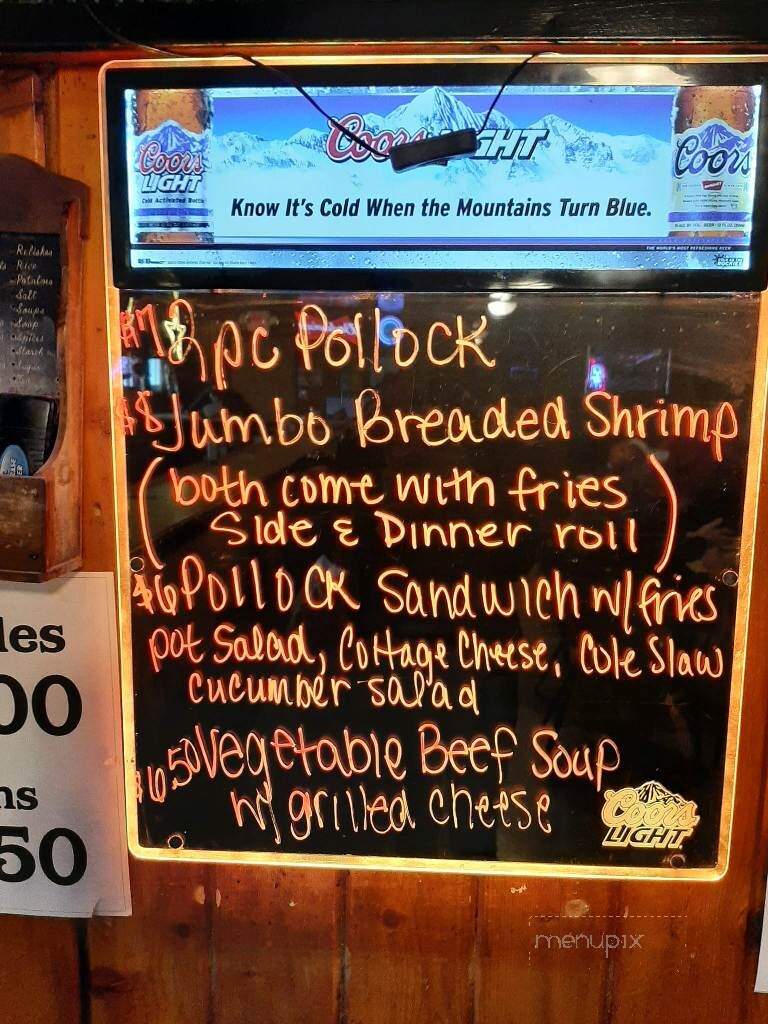 Coors LIGHT
Cold Activated Bottle
Coors
Know It's Cold When the Mountains Turn Blue.
THE WORLD'S MOST REFRESHING BEER
Relishes
Rice
Potatoes
Salt
Soups
Soap
Spices
Starch
$7 2pc Pollock
$8 Jumbo Breaded Shrimp
(both come with fries
Side & Dinner roll)
$6 Pollock Sandwich w/fries
pot Salad, Cottage Cheese, Cole Slaw
cucumber salad
$6.50 Vegetable Beef Soup
w/ grilled cheese
Coors
LIGHT
les
00
ns
50
menupix